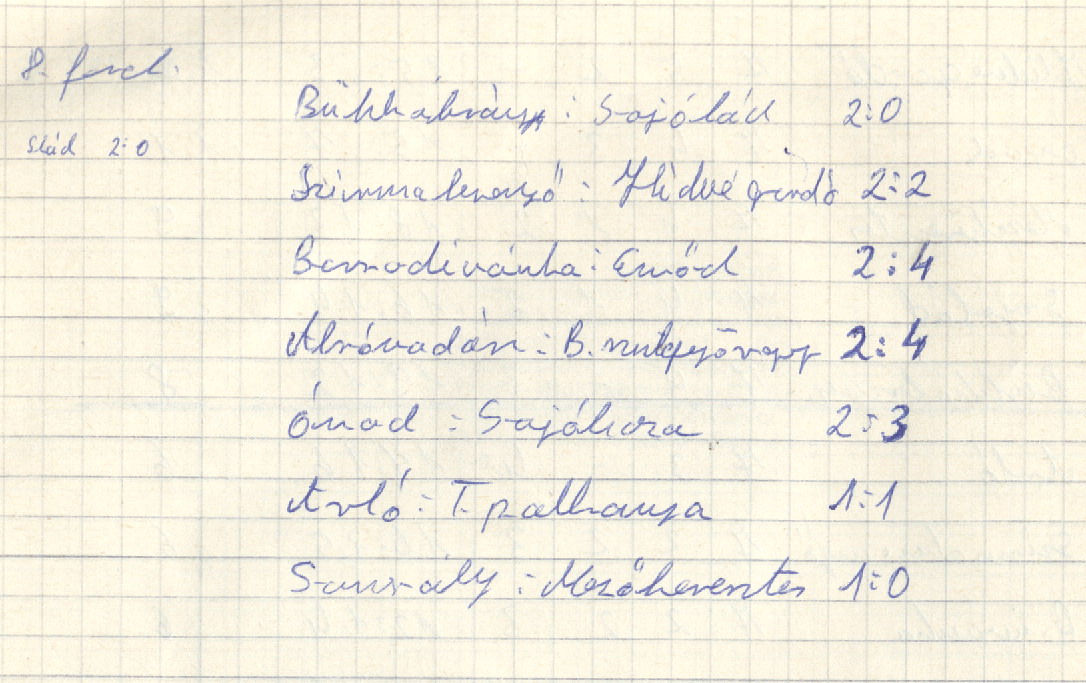 8. ford.
Slád 2:0
Bükkábrány : Sajólád 2:0
Szirmabesenyő : Hidvégardó 2:2
Borsodivánka : Emőd 2:4
Alsóvadász : B. 2:4
Ónod : Sajókaza 2:3
Arló : T. palkonya 1:1
Sansály : Mezőkeresztes 1:0